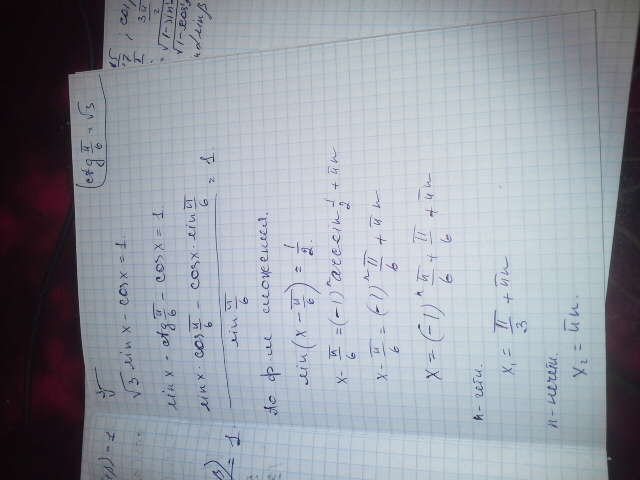 ctg π/6 = √3
√3 sin x - cos x = 1.
sin x · ctg π/6 - cos x = 1
(sin x · cos π/6 - cos x · sin π/6) / sin π/6 = 1.
по ф-ле сложения.
sin (x - π/6) = 1/2
x - π/6 = (-1)ⁿ arcsin 1/2 + πn
x - π/6 = (-1)ⁿ π/6 + πn
x = (-1)ⁿ π/6 + π/6 + πn
n - четн.
x₁ = π/3 + πn
n - нечетн.
x₂ = πn.